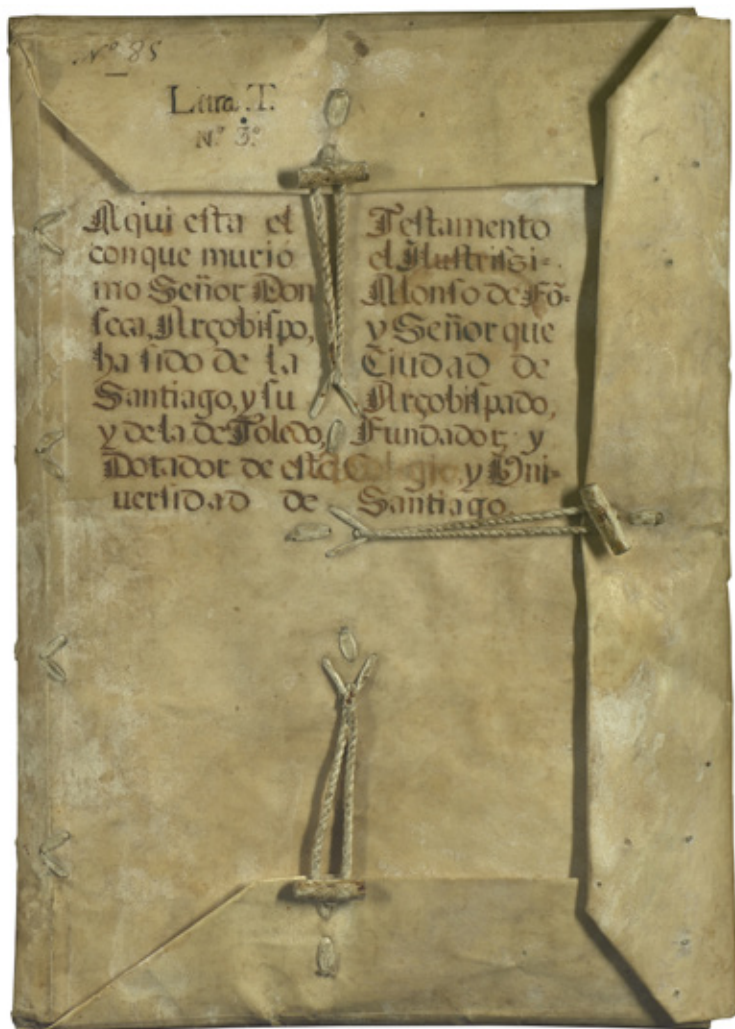 Nº 85
Litra. T.
Nº 3º
Aqui esta el Testamento
con que murio el Ilustrissi-
mo Señor Don Alonso de Fō-
seca, Arçobispo, y Señor que
ha sido de la Ciudad de
Santiago, y su Arçobispado,
y de la de Toledo, Fundador y
Dotador de este Colegio, y Uni-
uersidad de Santiago.